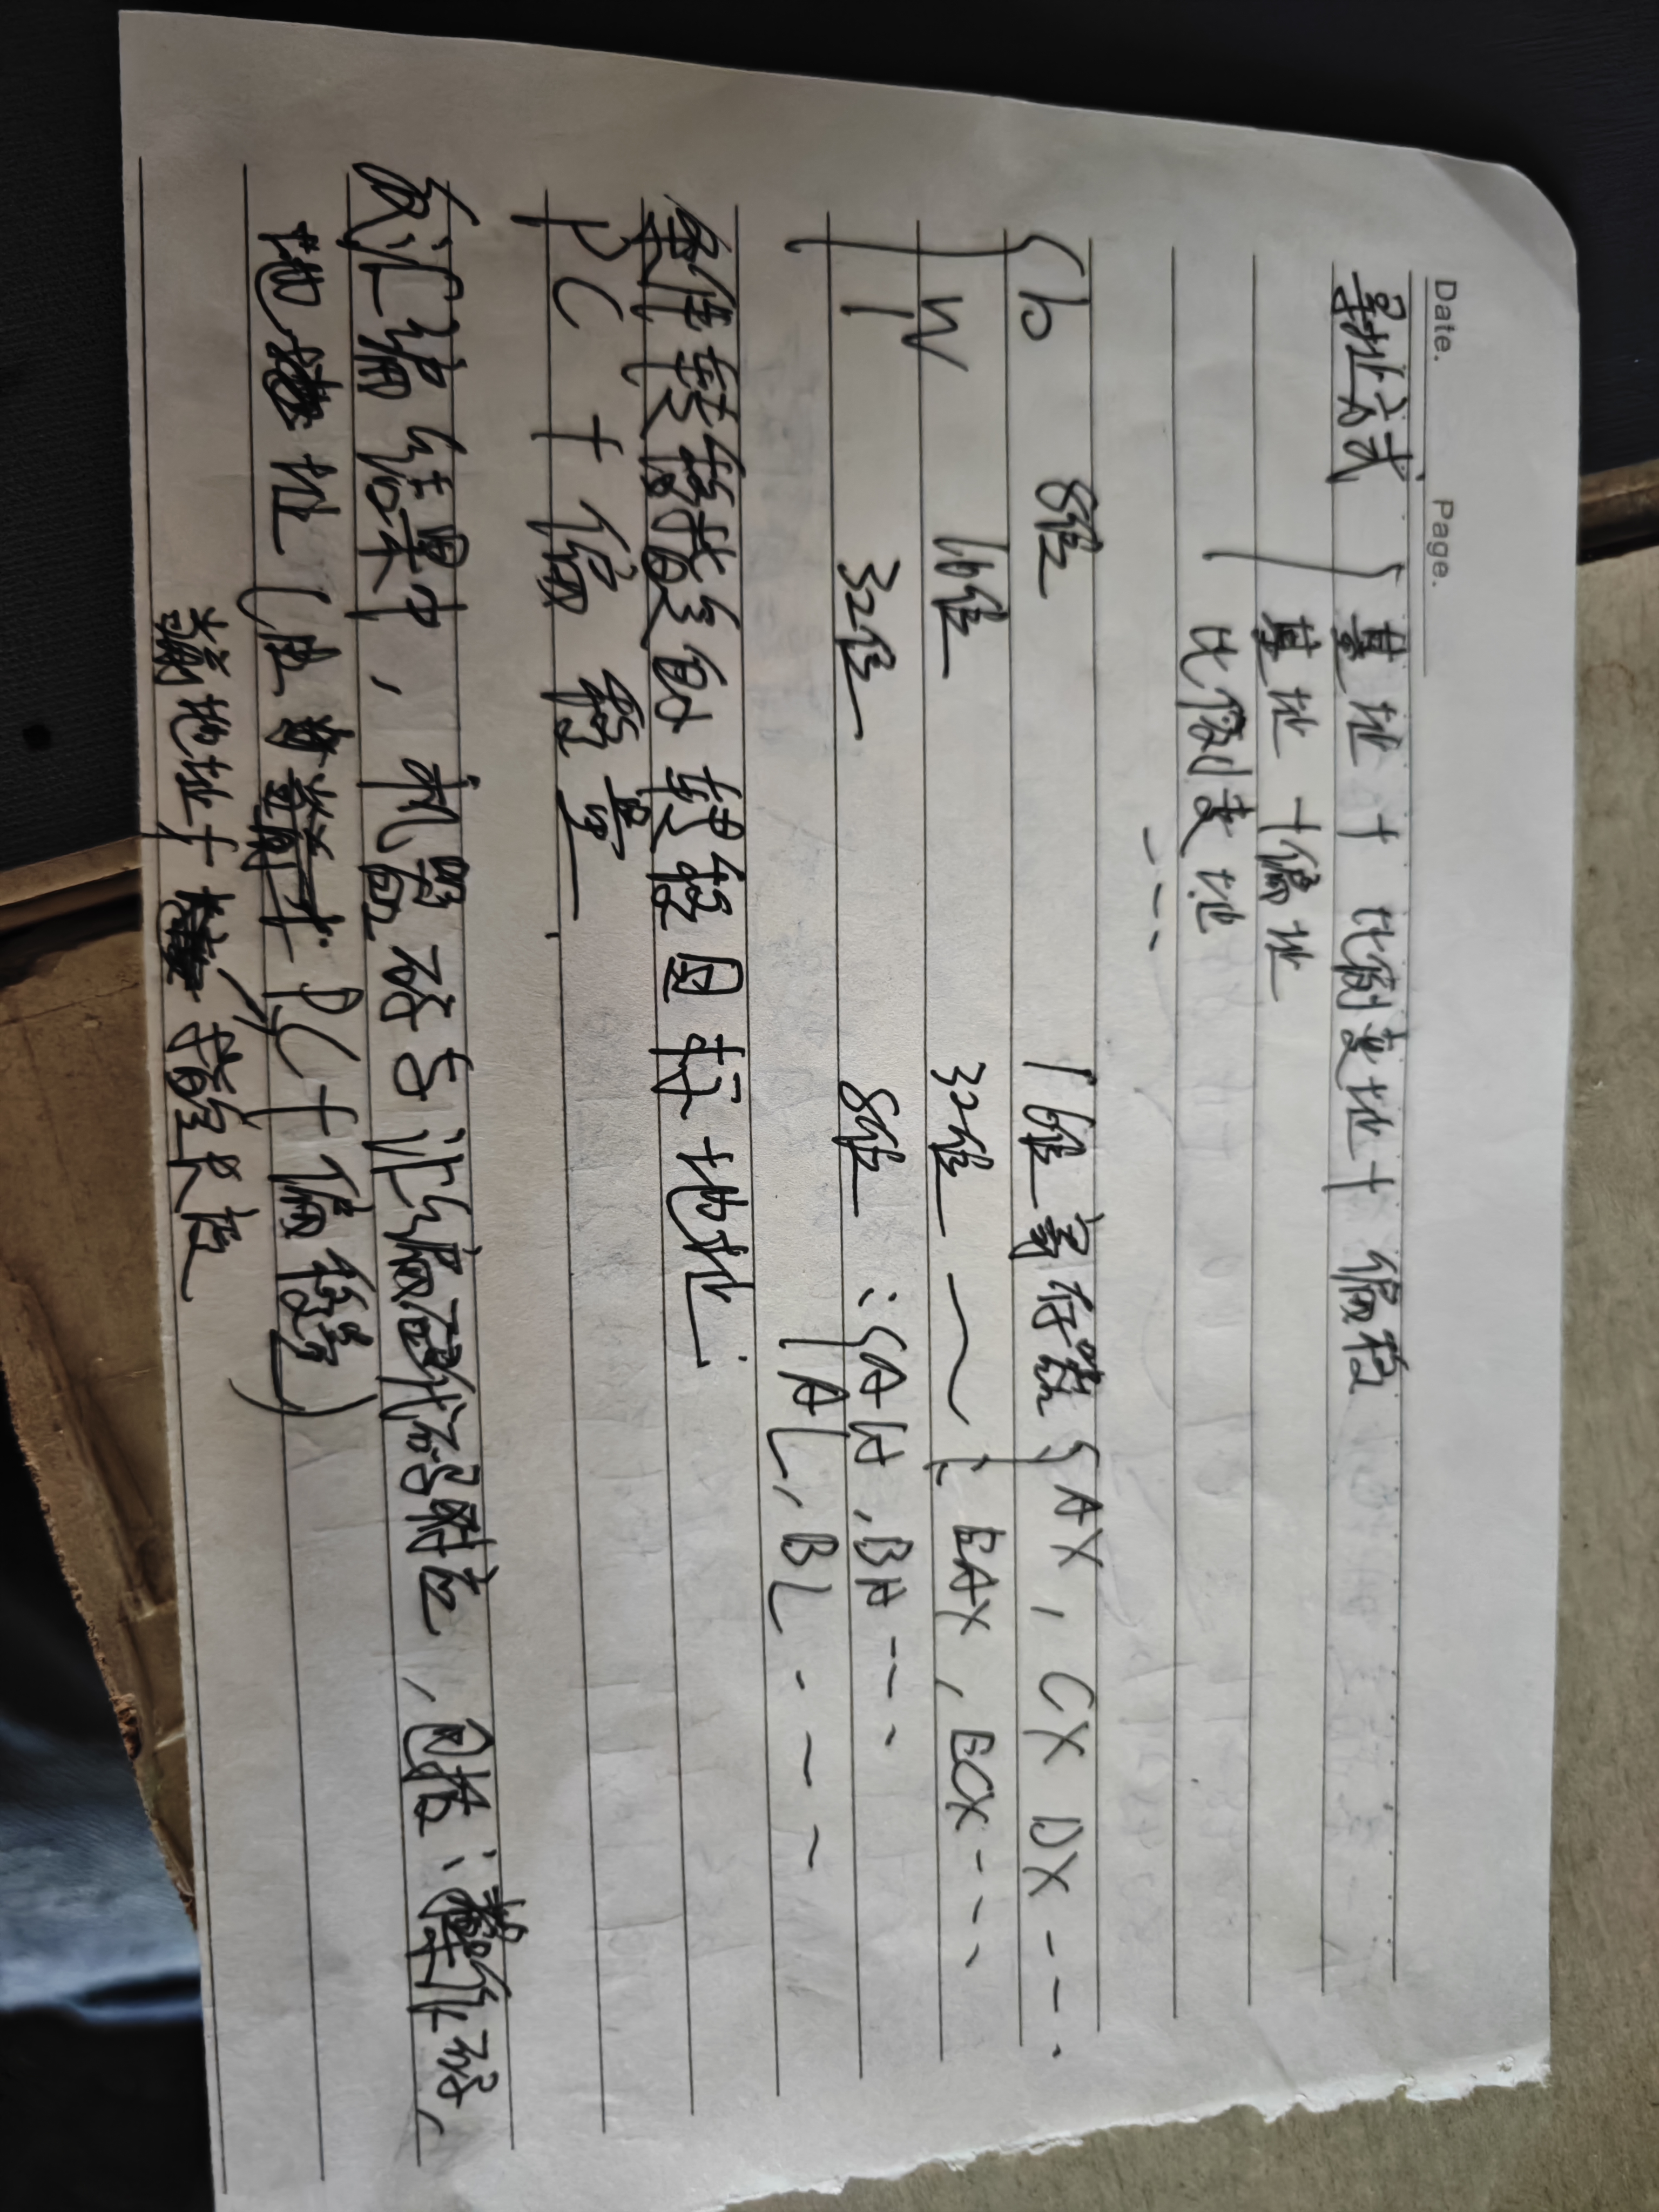 Date. Page.
寻址方式 { 基址 + 比例变址 + 偏移
基址 + 偏址
比例变址
----
{ b 8位 16位寄存器 { AX, CX DX ---.
w 16位 32位 ~ { EAX, ECX ---
l 32位 8位 : { AH, BH ---
AL, BL ----
条件转移指令的转移目标地址
PC + 偏移量
反汇编结果中, 机器码与汇编代码对应, 包括: 操作码,
地址 ( PC + 偏移等)
地址 + 指令长度